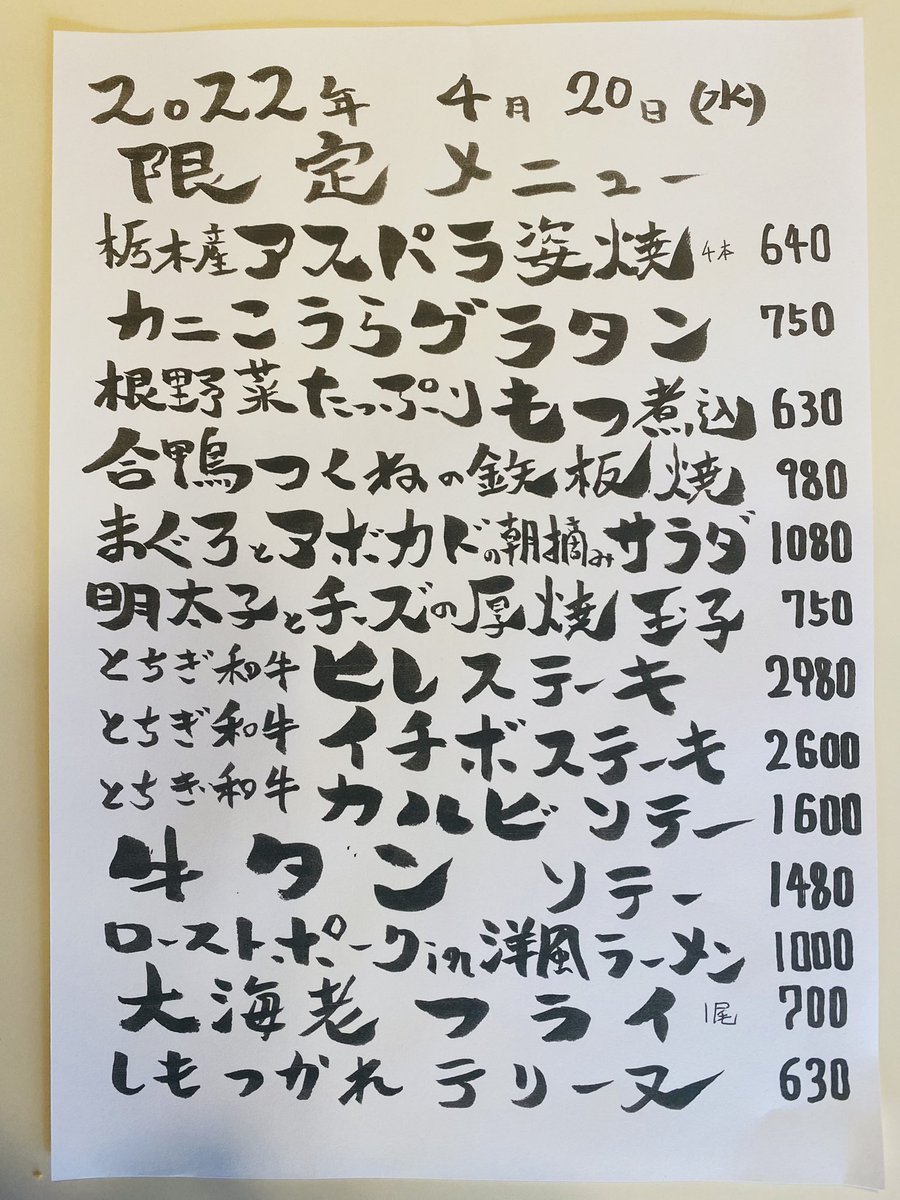 2022年 4月 20日 (水)
限定メニュー
栃木産アスパラ姿焼 4本 640
カニこうらグラタン 750
根野菜たっぷりもつ煮込 630
合鴨つくねの鉄板焼 980
まぐろとアボカドの朝摘みサラダ 1080
明太子とチーズの厚焼玉子 750
とちぎ和牛 ヒレステーキ 2980
とちぎ和牛 イチボステーキ 2600
とちぎ和牛 カルビソテー 1600
牛タン ソテー 1480
ローストポークin洋風ラーメン 1000
大海老フライ 1尾 700
しもつかれテリーヌ 630